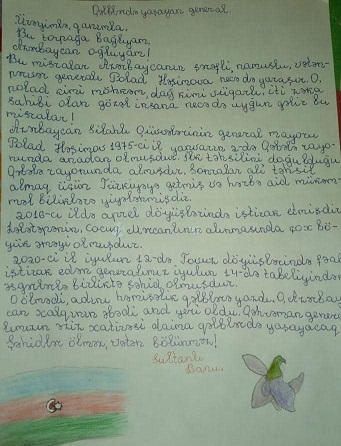 Qəlbində yaşayan general
Ürəyimlə, qanımla,
Bu torpağa bağlıyam,
Azərbaycan oğluyam!
Bu misralar Azərbaycanın şərəfli, namuslu, vətən-
pərvər generalı Polad Həşimova necə də yaraşır. O,
polad kimi möhkəm, dağ kimi vüqarlı, iti zəka
sahibi olan gözəl insana necə də uyğun gəlir bu
misralar!
Azərbaycan Silahlı Qüvvələrinin general mayoru
Polad Həşimov 1975-ci il yanvarın 2-də Qəbələ rayo-
nunda anadan olmuşdur. İlk təhsilini doğulduğu
Qəbələ rayonunda almışdır. Sonralar ali təhsil
almaq üçün Türkiyəyə getmiş və hərbə aid mükəm-
məl biliklərə yiyələnmişdir.
2016-cı ildə aprel döyüşlərində iştirak etmişdir.
Lələtəpənin, Cocuq Mərcanlının alınmasında çox bö-
yük əməyi olmuşdur.
2020-ci il iyulun 12-də Tovuz döyüşlərində fəal
iştirak edən generalımız iyulun 14-də tabeliyindən
əsgərlərlə birlikdə şəhid olmuşdur.
O ölmədi, adını həmişəlik qəlblərə yazdı. O, Azərbay-
can xalqının əbədi and yeri oldu. Qəhrəman genera-
lımızın əziz xatirəsi daima qəlblərdə yaşayacaq.
Şəhidlər ölməz, vətən bölünməz!
Sultanlı
Banu.